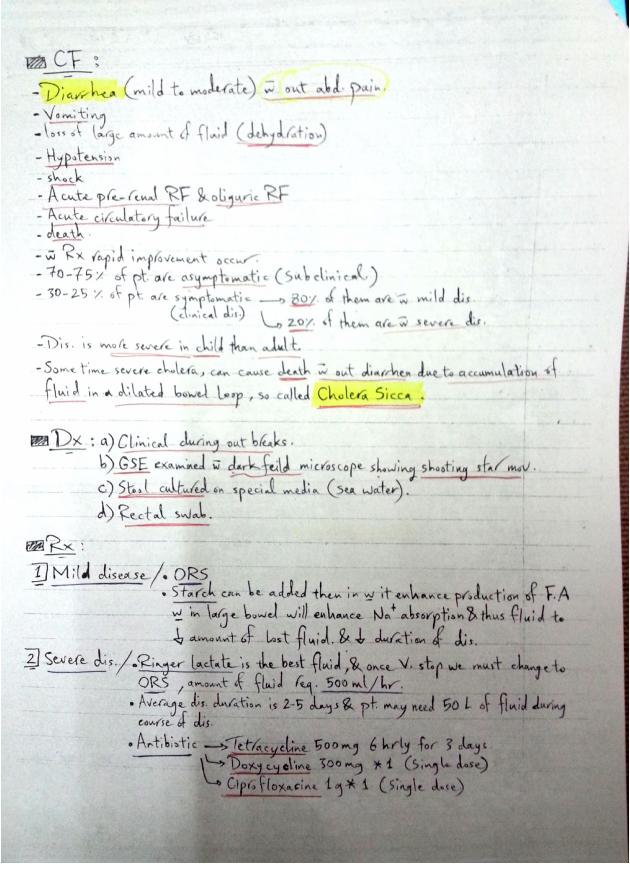 CF :
- Diarrhea (mild to moderate) w̄ out abd. pain.
- Vomiting
- loss of large amount of fluid (dehydration)
- Hypotension
- shock
- Acute pre-renal RF & oliguric RF
- Acute circulatory failure
- death.
- w̄ Rx rapid improvement occur.
- 70-75% of pt. are asymptomatic (Subclinical)
- 30-25 % of pt. are symptomatic → 80% of them are w̄ mild dis.
(clinical dis) ↳ 20% of them are w̄ severe dis.
- Dis. is more severe in child than adult.
- Some time severe cholera, can cause death w̄ out diarrhea due to accumulation of
fluid in a dilated bowel loop, so called Cholera Sicca.
Dx : a) Clinical during out breaks.
b) GSE examined w̄ dark feild microscope showing shooting star mov.
c) Stool cultured on special media (sea water).
d) Rectal swab.
Rx :
1] Mild disease / • ORS
• Starch can be added then in w it enhance production of F.A
w in large bowel will enhance Na⁺ absorption & thus fluid to
↓ amount of lost fluid. & ↓ duration of dis.
2] Severe dis. / • Ringer lactate is the best fluid, & once V. stop we must change to
ORS, amount of fluid req. 500 ml/hr.
• Average dis. duration is 2-5 days & pt. may need 50 L of fluid during
course of dis.
• Antibiotic → Tetracycline 500 mg 6 hrly for 3 days
↳ Doxycycline 300 mg * 1 (Single dose)
↳ Ciprofloxacine 1g * 1 (Single dose)